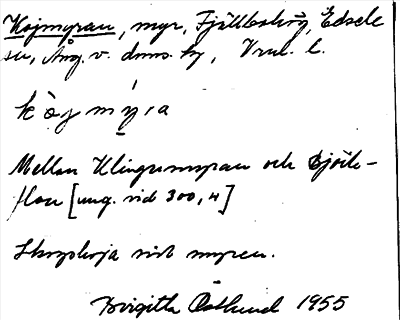 Kojmyran, myr, Fjällbohög, Edsele
sn, Ång. v. doms. hy, Vrul. l.
kòjmýra
Mellan Klingermyran och Björk-
flon [ung. vid 300, 4]
Skogskoja vid myren.
Birgitta Östlund 1955